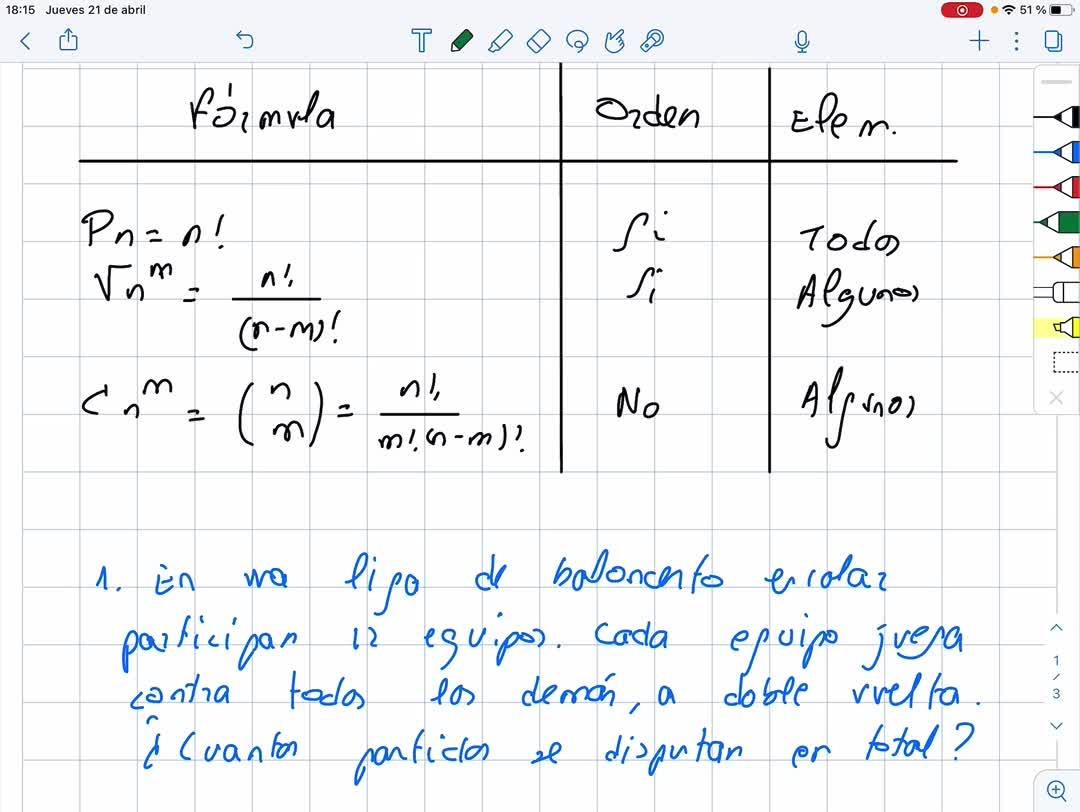 18:15 Jueves 21 de abril 51 %
Fórmula Orden Elem.
Pn = n! Si Todos
Vn^m = n! / (n-m)! Si Algunos
Cn^m = (n m) = n! / m!(n-m)! No Algunos
1. En una liga de baloncesto escolar
participan 12 equipos. Cada equipo juega
contra todos los demás, a doble vuelta.
¿Cuantos partidos se disputan en total?
1
/
3